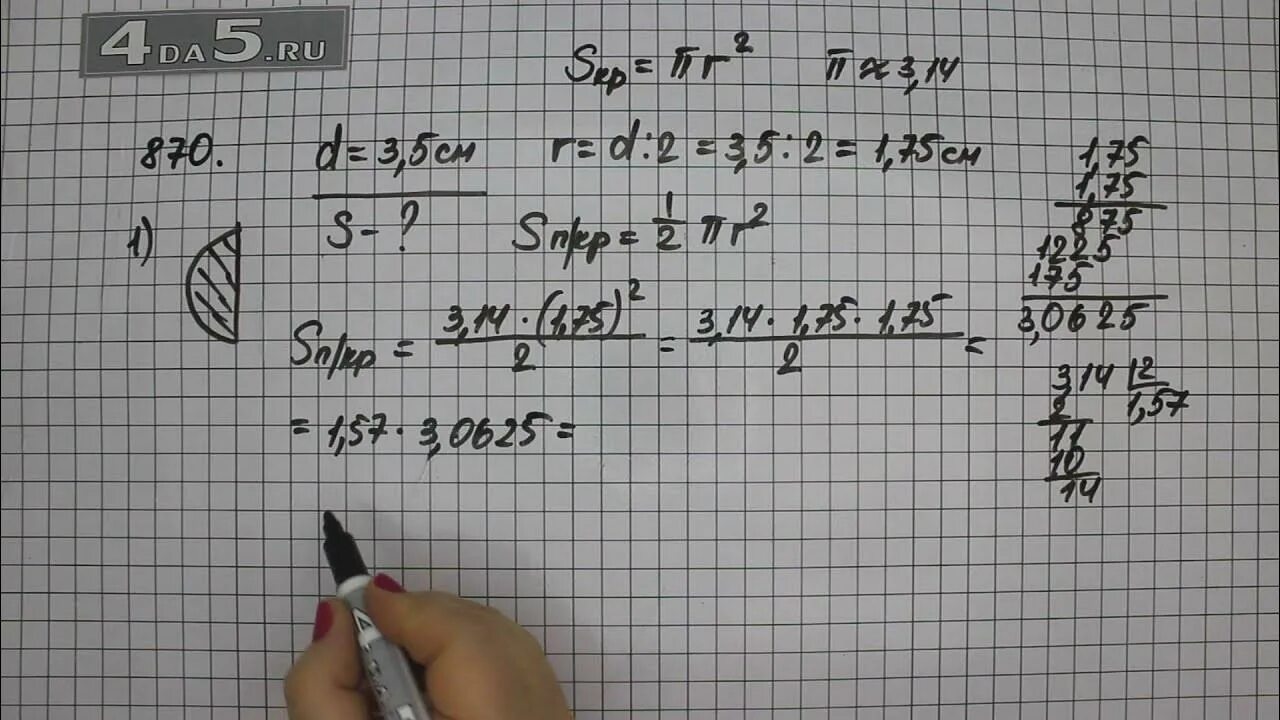 4DA5.RU
Sкр = πr² π ≈ 3,14
870. d = 3,5 см r = d : 2 = 3,5 : 2 = 1,75 см
S - ?
1) Sп/кр = 1/2 πr²
Sп/кр = 3,14 · (1,75)² / 2 = 3,14 · 1,75 · 1,75 / 2 =
= 1,57 · 3,0625 =
1,75
1,75
875
1225
175
3,0625
3,14 | 2
2 1,57
11
10
14